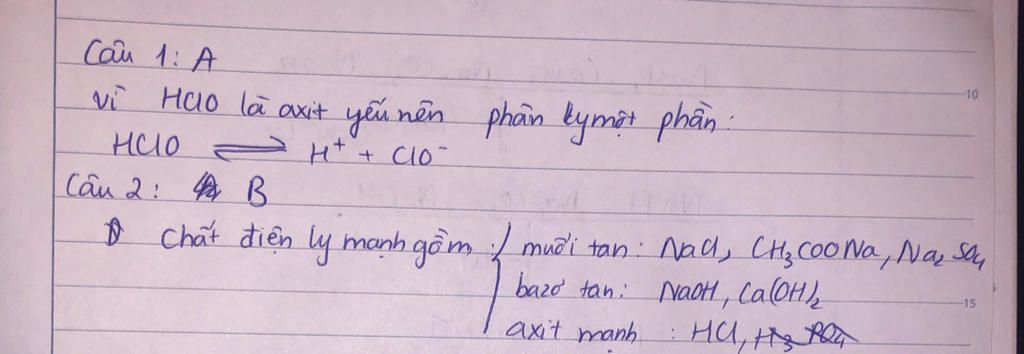 Câu 1: A
Vì HClO là axit yếu nên phân ly một phần:
HClO ⇌ H⁺ + ClO⁻
Câu 2: B
Chất điện ly mạnh gồm: muối tan: NaCl, CH₃COONa, Na₂SO₄
bazơ tan: NaOH, Ca(OH)₂
axit mạnh : HCl, H₃PO₄
10
15